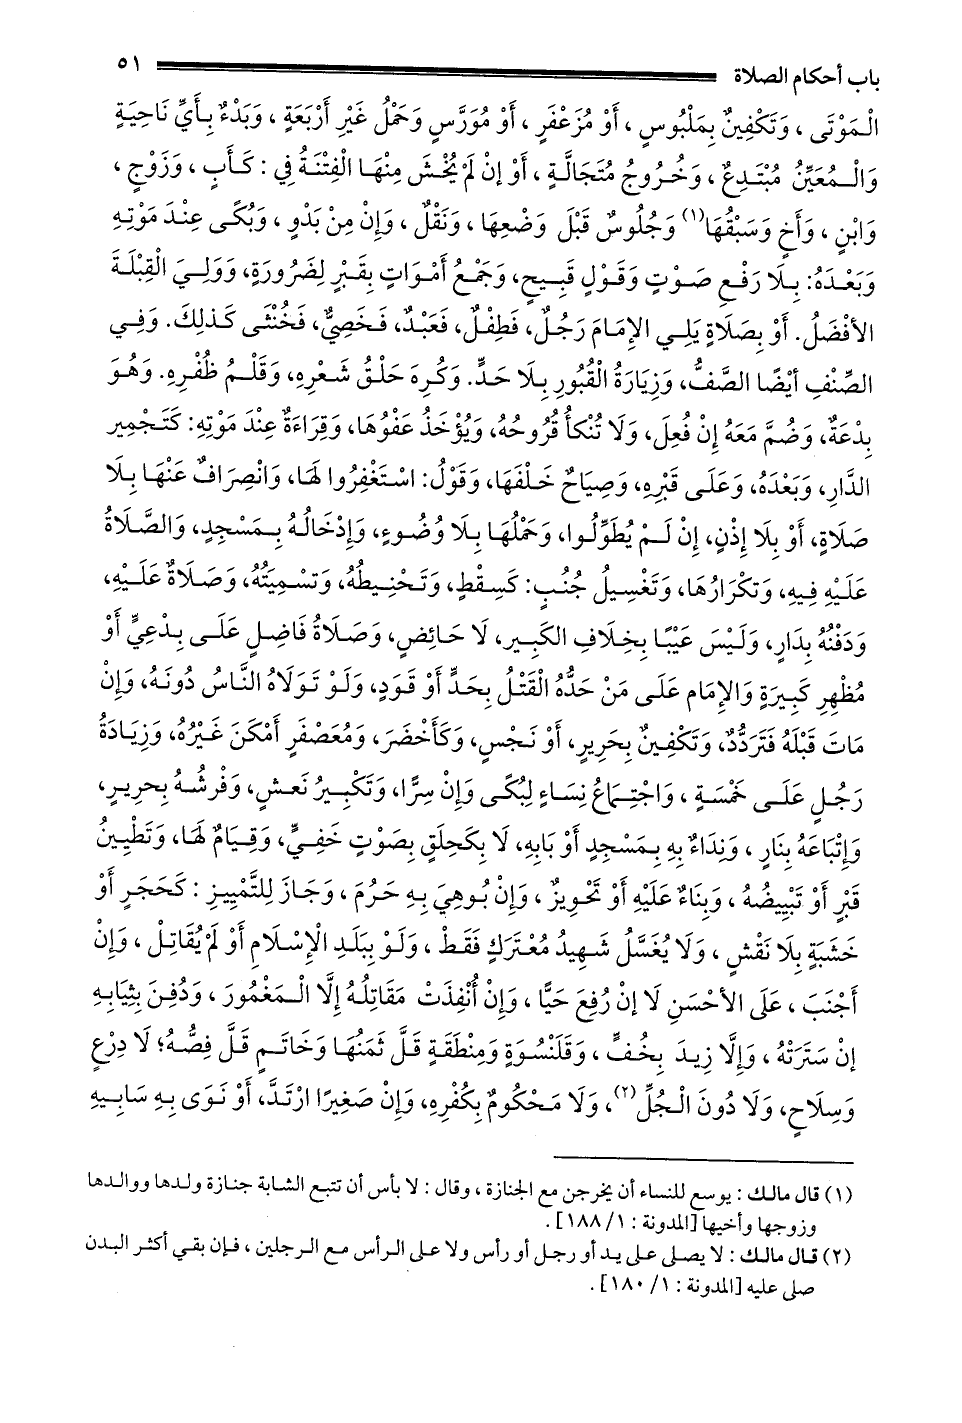 باب أحكام الصلاة ٥١
الْمَوْتَى ، وَتَكْفِينٌ بِمَلْبُوسٍ ، أَوْ مُزَعْفَرٍ ، أَوْ مُوَرَّسٍ وَحَمْلُ غَيْرِ أَرْبَعَةٍ ، وَبَدْءٌ بِأَيِّ نَاحِيَةٍ
وَالْمُعَيِّنُ مُبْتَدِعٌ ، وَخُرُوجُ مُتَجَالَّةٍ ، أَوْ إِنْ لَمْ يُخْشَ مِنْهَا الْفِتْنَةُ فِي : كَأَبٍ ، وَزَوْجٍ ،
وَابْنٍ ، وَأَخٍ وَسَبْقُهَا(١) وَجُلُوسٌ قَبْلَ وَضْعِهَا ، وَنَقْلٌ ، وَإِنْ مِنْ بَدْوٍ ، وَبُكًى عِنْدَ مَوْتِهِ
وَبَعْدَهُ: بِلَا رَفْعِ صَوْتٍ وَقَوْلٍ قَبِيحٍ، وَجَمْعُ أَمْوَاتٍ بِقَبْرٍ لِضَرُورَةٍ، وَوَلِيَ الْقِبْلَةَ
الأَفْضَلُ. أَوْ بِصَلَاةٍ يَلِي الإِمَامَ رَجُلٌ، فَطِفْلٌ، فَعَبْدٌ، فَخَصِيٌّ، فَخُنْثَى كَذلِكَ. وَفِي
الصِّنْفِ أَيْضًا الصَّفُّ، وَزِيَارَةُ الْقُبُورِ بِلَا حَدٍّ. وَكُرِهَ حَلْقُ شَعْرِهِ، وَقَلْمُ ظُفْرِهِ. وَهُوَ
بِدْعَةٌ، وَضُمَّ مَعَهُ إِنْ فُعِلَ، وَلَا تُنْكَأُ قُرُوحُهُ، وَيُؤْخَذُ عَفْوُهَا، وَقِرَاءَةٌ عِنْدَ مَوْتِهِ: كَتَجْمِيرِ
الدَّارِ، وَبَعْدَهُ، وَعَلَى قَبْرِهِ، وَصِيَاحٌ خَلْفَهَا، وَقَوْلُ: اسْتَغْفِرُوا لَهَا، وَانْصِرَافٌ عَنْهَا بِلَا
صَلَاةٍ، أَوْ بِلَا إِذْنٍ، إِنْ لَمْ يُطَوِّلُوا، وَحَمْلُهَا بِلَا وُضُوءٍ، وَإِدْخَالُهُ بِمَسْجِدٍ، وَالصَّلَاةُ
عَلَيْهِ فِيهِ، وَتَكْرَارُهَا، وَتَغْسِيلُ جُنُبٍ: كَسِقْطٍ، وَتَحْنِيطُهُ، وَتَسْمِيَتُهُ، وَصَلَاةٌ عَلَيْهِ،
وَدَفْنُهُ بِدَارٍ، وَلَيْسَ عَيْبًا بِخِلَافِ الكَبِيرِ، لَا حَائِضٍ، وَصَلَاةُ فَاضِلٍ عَلَى بِدْعِيٍّ أَوْ
مُظْهِرِ كَبِيرَةٍ وَالإِمَامِ عَلَى مَنْ حَدُّهُ الْقَتْلُ بِحَدٍّ أَوْ قَوَدٍ، وَلَوْ تَوَلَّاهُ النَّاسُ دُونَهُ، وَإِنْ
مَاتَ قَبْلَهُ فَتَرَدُّدٌ، وَتَكْفِينٌ بِحَرِيرٍ، أَوْ نَجْسٍ، وَكَأَخْضَرَ، وَمُعَصْفَرٍ أَمْكَنَ غَيْرُهُ، وَزِيَادَةُ
رَجُلٍ عَلَى خَمْسَةٍ ، وَاجْتِمَاعُ نِسَاءٍ لِبُكًى وَإِنْ سِرًّا، وَتَكْبِيرُ نَعْشٍ، وَفَرْشُهُ بِحَرِيرٍ،
وَإِتْبَاعُهُ بِنَارٍ ، وَنِدَاءٌ بِهِ بِمَسْجِدٍ أَوْ بَابِهِ، لَا بِكَحِلَقٍ بِصَوْتٍ خَفِيٍّ، وَقِيَامٌ لَهَا، وَتَطْيِينُ
قَبْرٍ أَوْ تَبْيِيضُهُ ، وَبِنَاءٌ عَلَيْهِ أَوْ تَحْوِيزٌ ، وَإِنْ بُوهِيَ بِهِ حَرُمَ ، وَجَازَ لِلتَّمْيِيزِ : كَحَجَرٍ أَوْ
خَشَبَةٍ بِلَا نَقْشٍ ، وَلَا يُغَسَّلُ شَهِيدُ مُعْتَرَكٍ فَقَطْ ، وَلَوْ بِبَلَدِ الْإِسْلَامِ أَوْ لَمْ يُقَاتِلْ ، وَإِنْ
أَجْنَبَ ، عَلَى الأَحْسَنِ لَا إِنْ رُفِعَ حَيًّا ، وَإِنْ أُنْفِذَتْ مَقَاتِلُهُ إِلَّا الْمَغْمُورَ ، وَدُفِنَ بِثِيَابِهِ
إِنْ سَتَرَتْهُ ، وَإِلَّا زِيدَ بِخُفٍّ ، وَقَلَنْسُوَةٍ وَمِنْطَقَةٍ قَلَّ ثَمَنُهَا وَخَاتَمٍ قَلَّ فِصُّهُ؛ لَا دِرْعٍ
وَسِلَاحٍ، وَلَا دُونَ الْجُلِّ(٢)، وَلَا مَحْكُومٌ بِكُفْرِهِ، وَإِنْ صَغِيرًا ارْتَدَّ، أَوْ نَوَى بِهِ سَابِيهِ
(١) قال مالك : يوسع للنساء أن يخرجن مع الجنازة ، وقال : لا بأس أن تتبع الشابة جنازة ولدها ووالدها
وزوجها وأخيها [المدونة : ١/ ١٨٨] .
(٢) قال مالك : لا يصلى على يد أو رجل أو رأس ولا على الرأس مع الرجلين ، فإن بقي أكثر البدن
صلى عليه [المدونة : ١/ ١٨٠] .